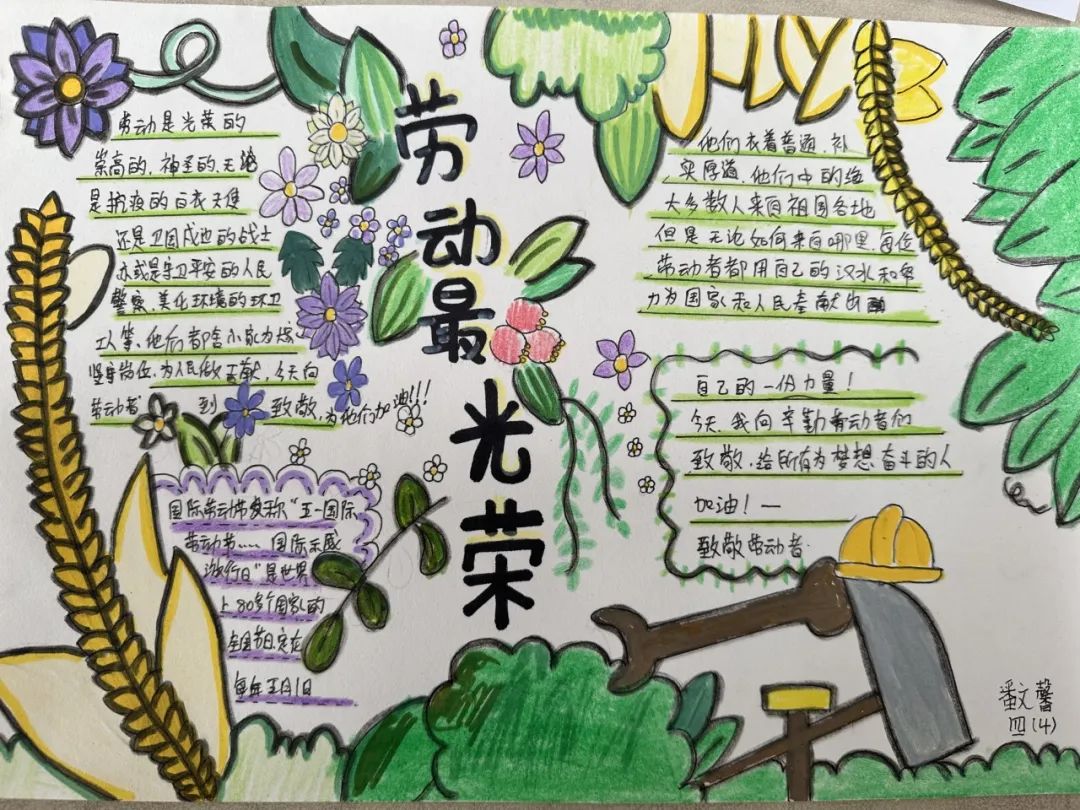 劳动最光荣
劳动是光荣的
崇高的，神圣的，无论
是抗疫的白衣天使
还是卫国戍边的战士
亦或是守卫平安的人民
警察，美化环境的环卫
工人等，他们都舍小家为大家
坚守岗位，为人民做贡献，今天向
劳动者 到 致敬，为他们加油!!!
国际劳动节又称"五一国际
劳动节…… 国际示威
游行日"是世界
上80多个国家的
全国节日，定在
每年五月1日
他们衣着普通，朴
实厚道，他们中的绝
大多数人来自祖国各地
但是无论如何来自哪里，每位
劳动者都用自己的汉水和努
力为国家和人民奉献出
自己的一份力量！
今天，我向辛勤劳动者们
致敬，给所有为梦想奋斗的人
加油！一
致敬劳动者.
番文馨
四(4)